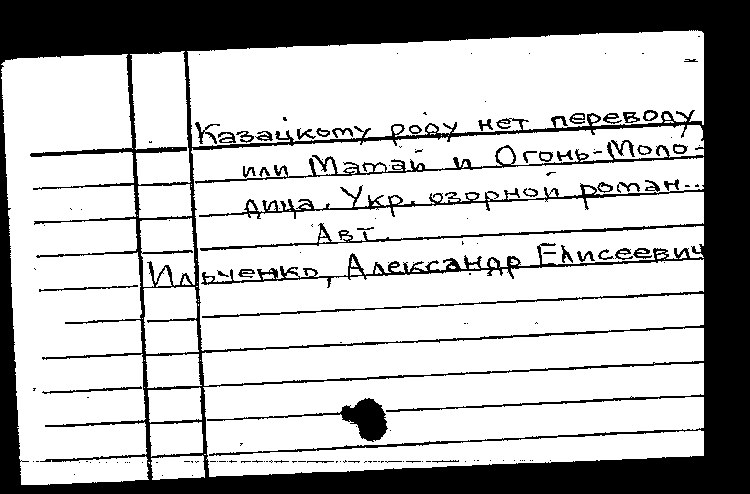 Казацкому роду нет переводу,
или Мамай и Огонь-Моло-
дица. Укр. озорной роман...
Авт.
Ильченко, Александр Елисеевич